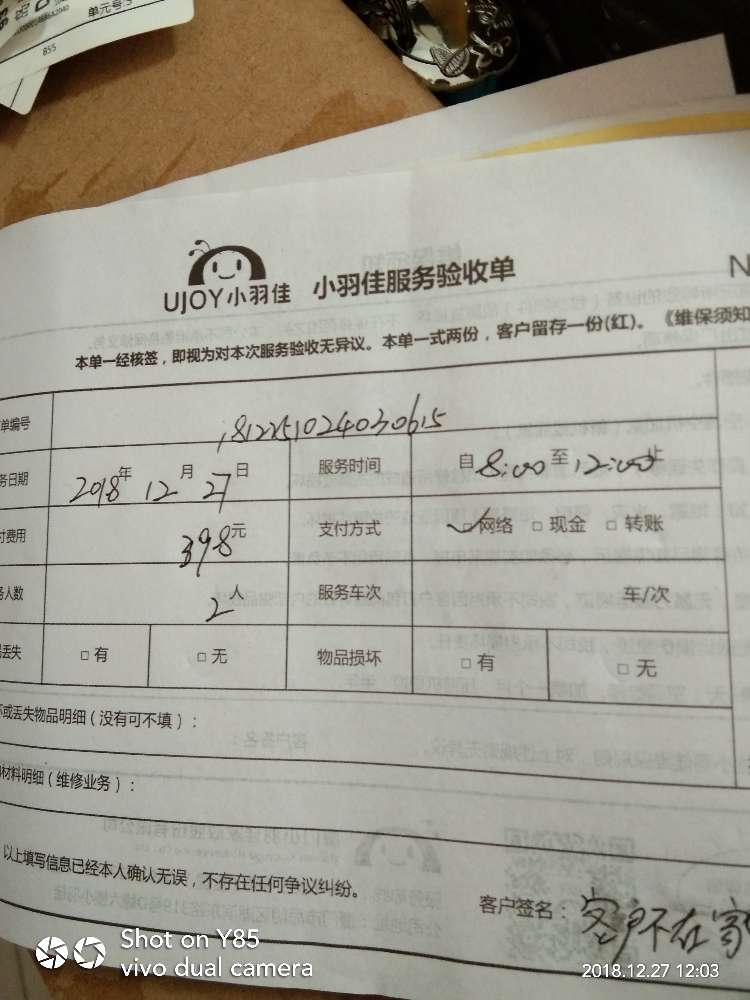 单元号:5
855
UJOY小羽佳 小羽佳服务验收单 N
本单一经核签，即视为对本次服务验收无异议。本单一式两份，客户留存一份(红)。《维保须知
单编号 1812251024030615
务日期 2018年 12月 27日 服务时间 自8:00至12:00止
付费用 398元 支付方式 ☑网络 □现金 □转账
务人数 2人 服务车次 车/次
丢失 □有 □无 物品损坏 □有 □无
坏或丢失物品明细（没有可不填）：
材料明细（维修业务）：
以上填写信息已经本人确认无误，不存在任何争议纠纷。
客户签名：客户不在家
Shot on Y85
vivo dual camera
2018.12.27 12:03